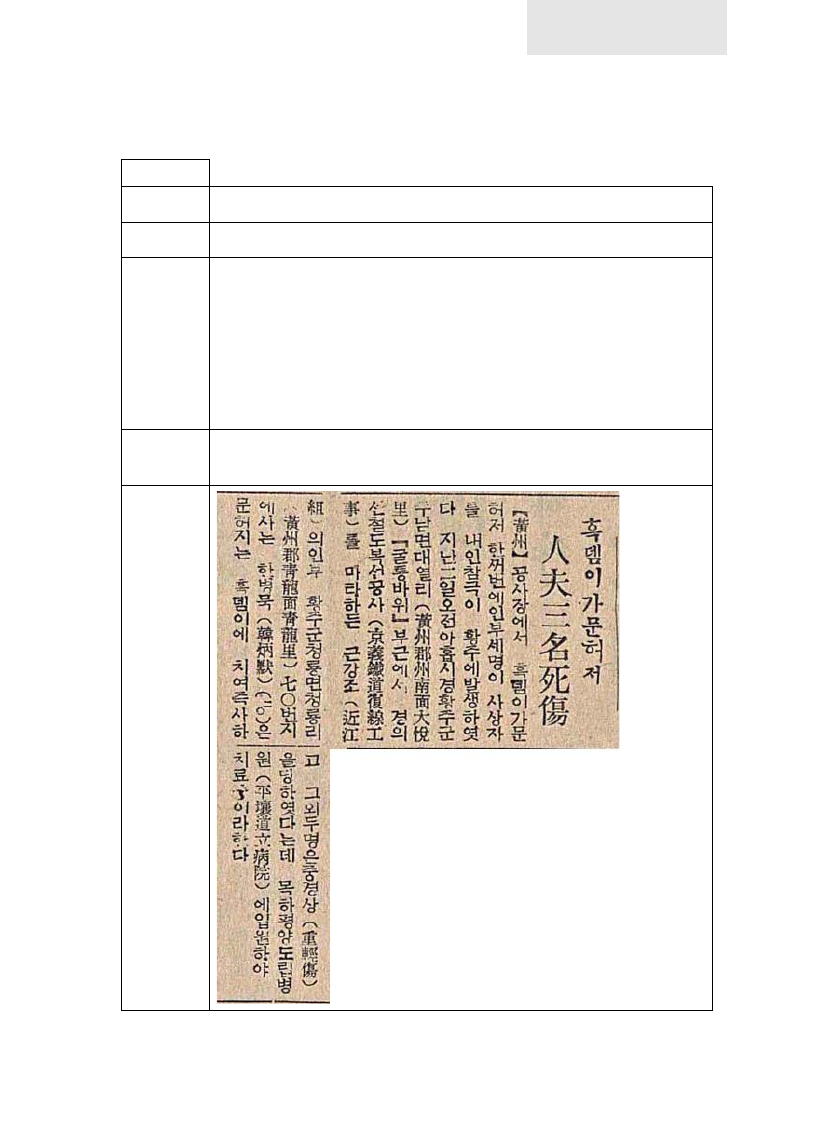 흑뎀이가문허저
人夫三名死傷
【黃州】 공사장에서 흑뎀이가문
허저 한꺼번에인부세명이 사상자
를 내인참극이 황주에발생하엿
다 지난二일오전아홉시경황주군
주남면대열리(黃州郡州南面大悅
里)『굴통바위』부근에서 경의
선철도복선공사(京義鐵道復線工
事)를 마타하든 근강조(近江
組)의인부 황주군청룡면청룡리
(黃州郡靑龍面靑龍里)七〇번지
에사는 한병묵(韓炳默)(二〇)은
문허지는 흑뎀이에 치여즉사하
고 그외두명은중경상(重輕傷)
을당하엿다는데 목하평양도립병
원(平壤道立病院)에입원하야
치료중이라한다